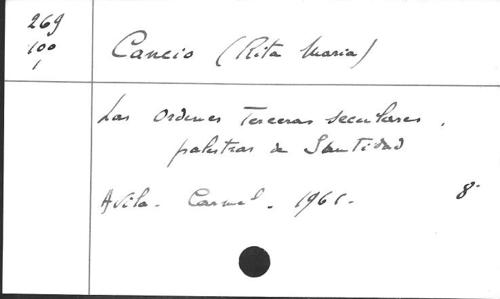 269
100
1
Cancio (Rita Maria)
Las Ordenes Terceras seculares,
palestras de Santidad
Avila - Carmel. 1961.
8º